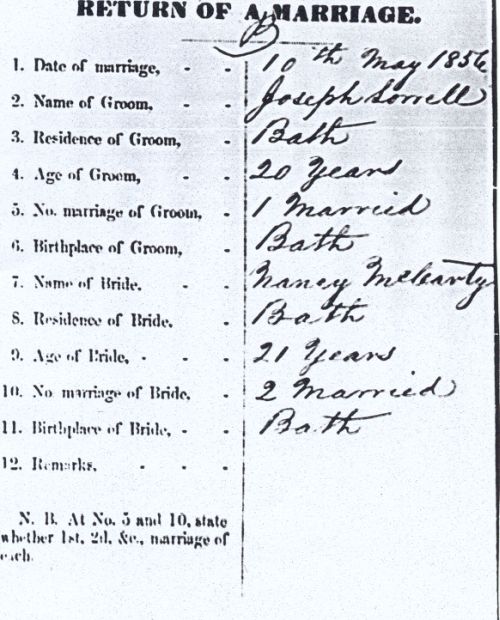 RETURN OF A MARRIAGE.
B
1. Date of marriage, - - 10th May 1856
2. Name of Groom, - - Joseph Sorrell
3. Residence of Groom, - Bath
4. Age of Groom, - - 20 Years
5. No. marriage of Groom, - 1 Married
6. Birthplace of Groom, - Bath
7. Name of Bride. - - Nancy McCarty
8. Residence of Bride. - Bath
9. Age of Bride, - - - 21 Years
10. No marriage of Bride, - 2 Married
11. Birthplace of Bride, - - Bath
12. Remarks, - - -
N. B. At No. 5 and 10, state
whether 1st, 2d, &c., marriage of
each.